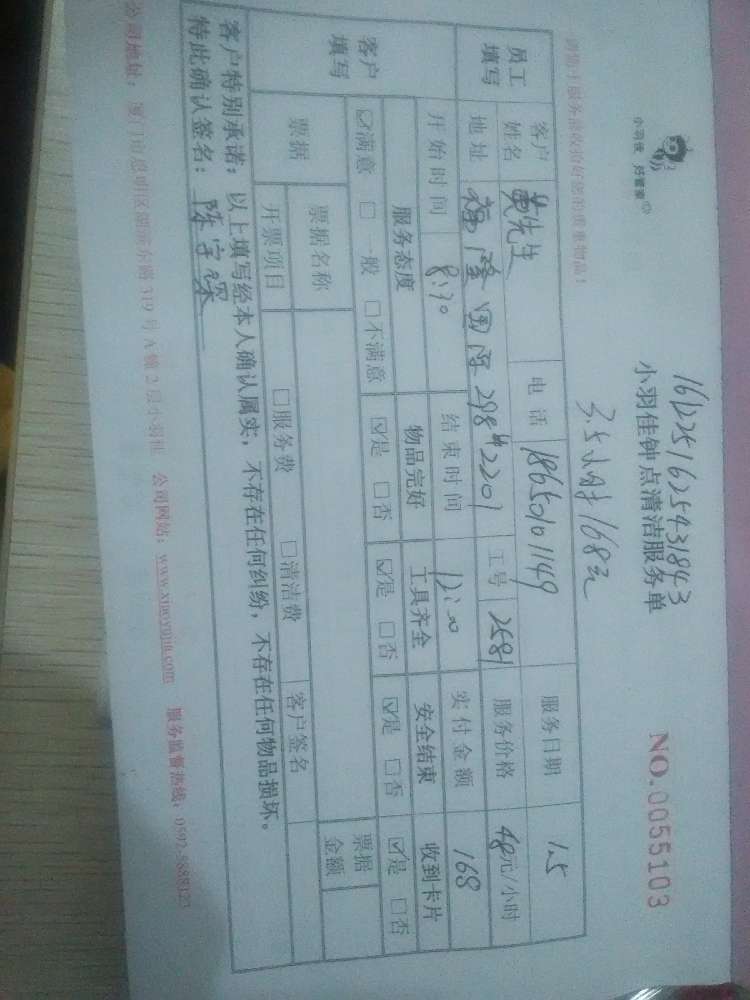 小羽佳 好管家
161225162543 1843
小羽佳钟点清洁服务单
NO.0055103
3.5小时168元
请您于服务前收拾好您的贵重物品！
员工填写 客户姓名 黄先生 电话 18650101149 服务日期 1.5
地址 福隆国际298#2201 工号 2581 服务价格 48元/小时
开始时间 8:30 结束时间 12:00 实付金额 168
客户填写 服务态度 物品完好 工具齐全 安全结束 收到卡片
☑满意 □一般 □不满意 ☑是 □否 ☑是 □否 ☑是 □否 ☑是 □否
票据 票据名称 票据金额
开票项目 □服务费 □清洁费 客户签名
客户特别承诺：以上填写经本人确认属实，不存在任何纠纷，不存在任何物品损坏。
特此确认签名：陈
公司地址：厦门市思明区湖滨东路319号A幢2层小羽佳 公司网站：www.xiaoyujia.com 服务监督热线：0592-5888123